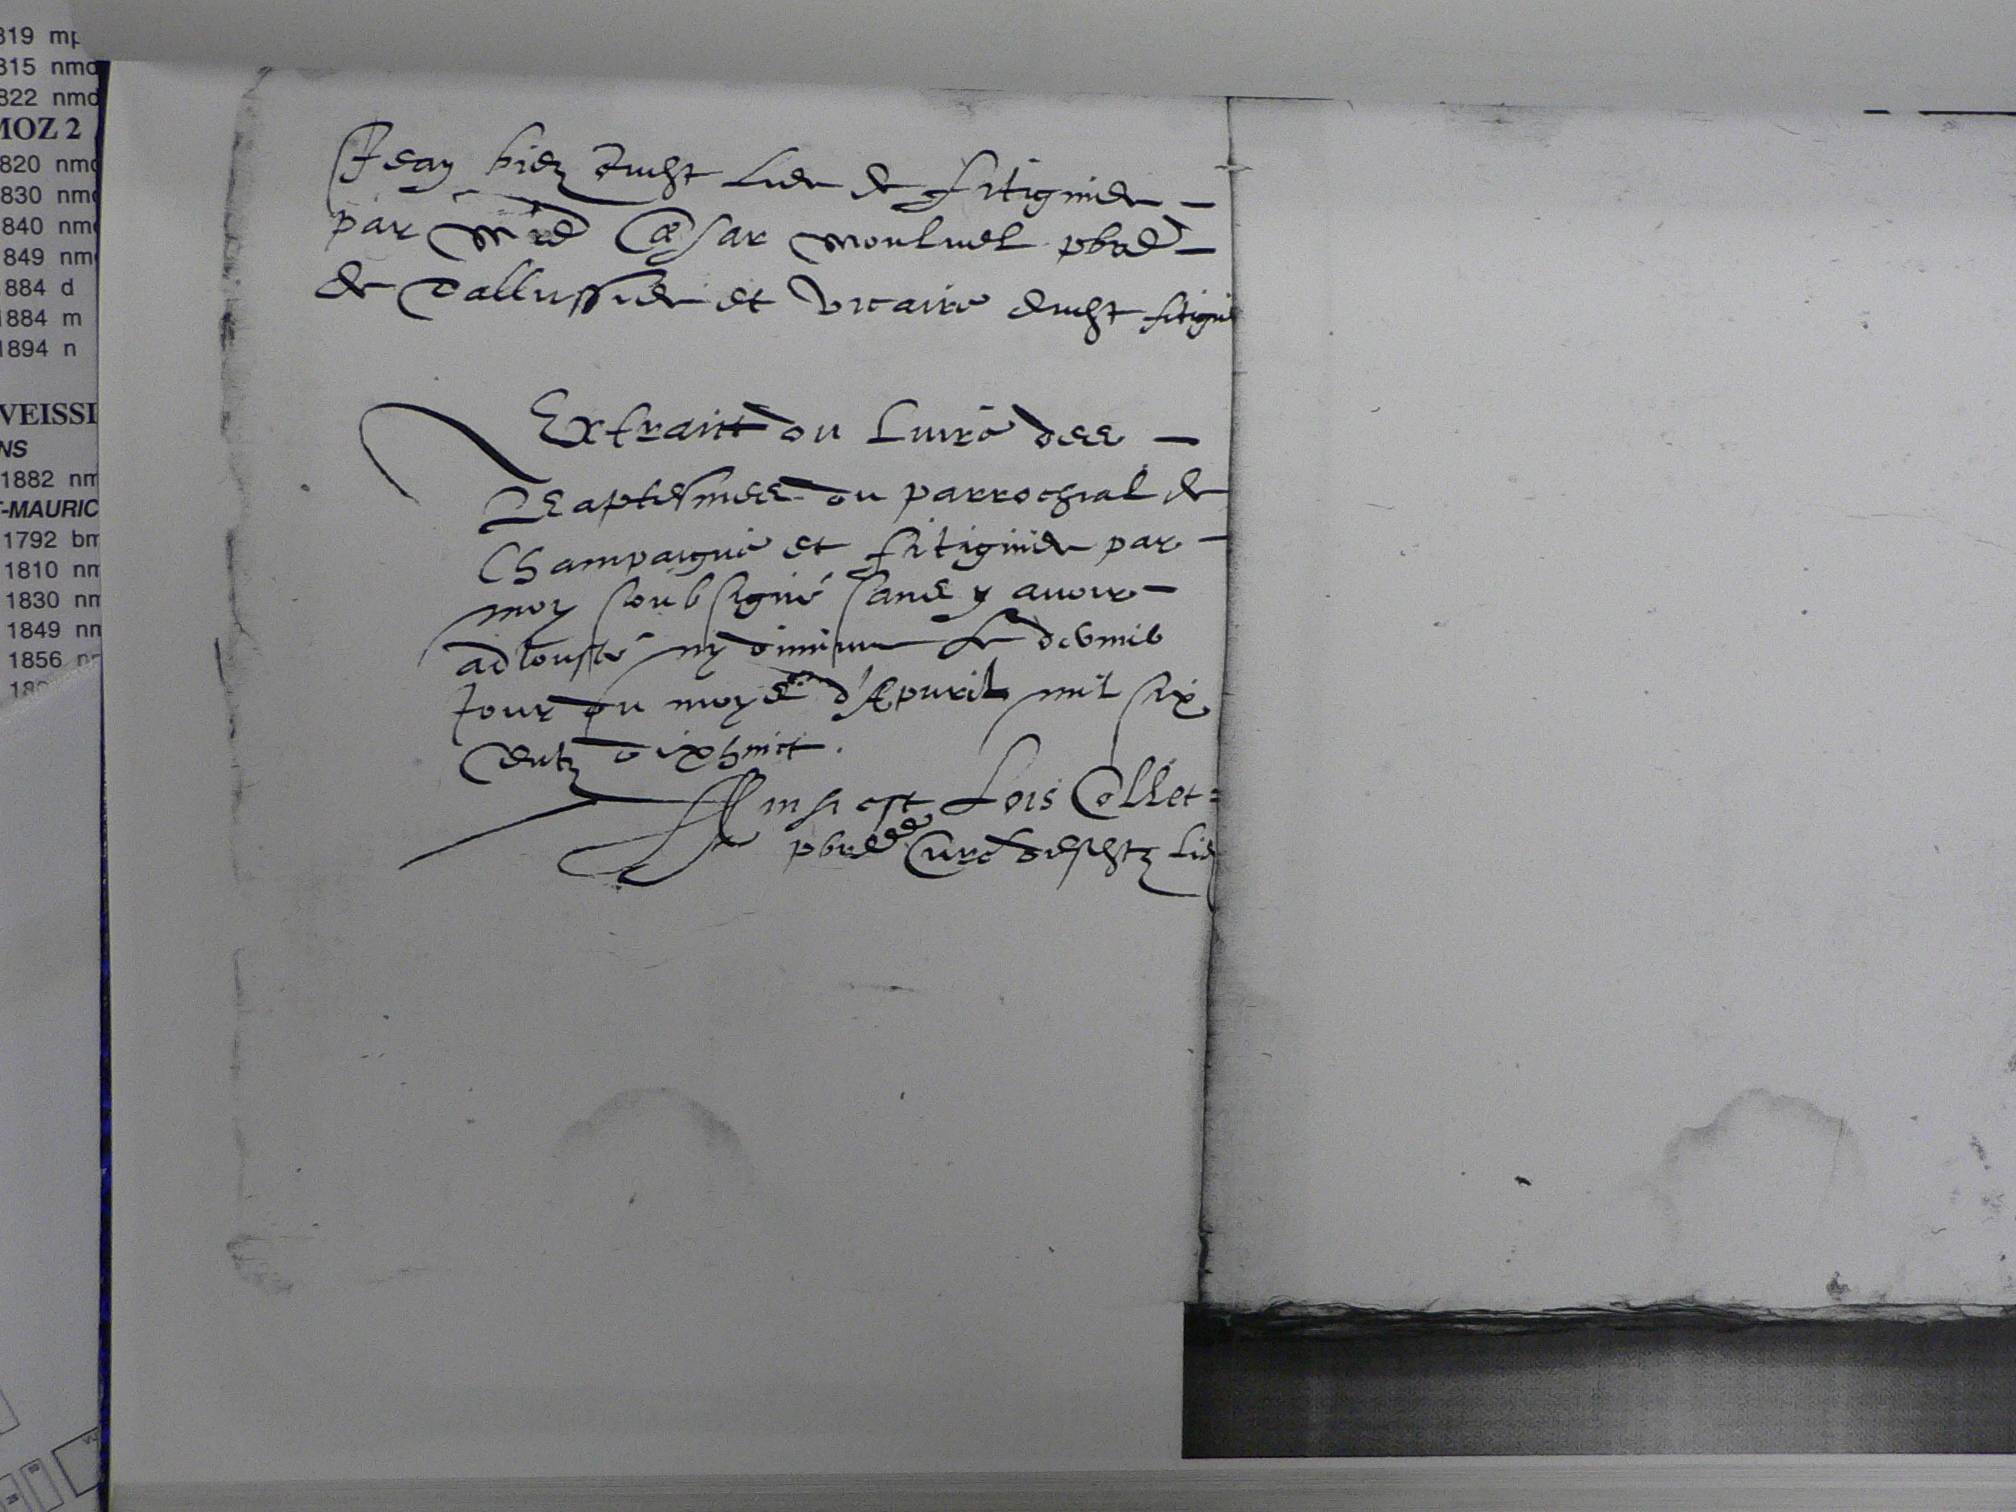 819 mp
815 nmd
822 nmd
MOZ 2
820 nmd
830 nmd
840 nmd
849 nmd
884 d
1884 m
1894 n
VEISSI
NS
1882 nm
T-MAURIC
1792 bm
1810 nm
1830 nm
1849 nm
1856 nm
Jean biez dudict lieu de fitignieu
par Mre Cæsar Monluel pbre
de Tallussieu et vicaire dudict fitignieu
Extraict du livre des
Baptesmes du parrochial de
Champaigne et fitignieu par
moy soubsigné sans y avoir
adiousté ny diminue le
Jour du moys d'Apvril mil six
centz dixhuict.
Ainsi est Lois Collet
pbre Curé desdictz lie